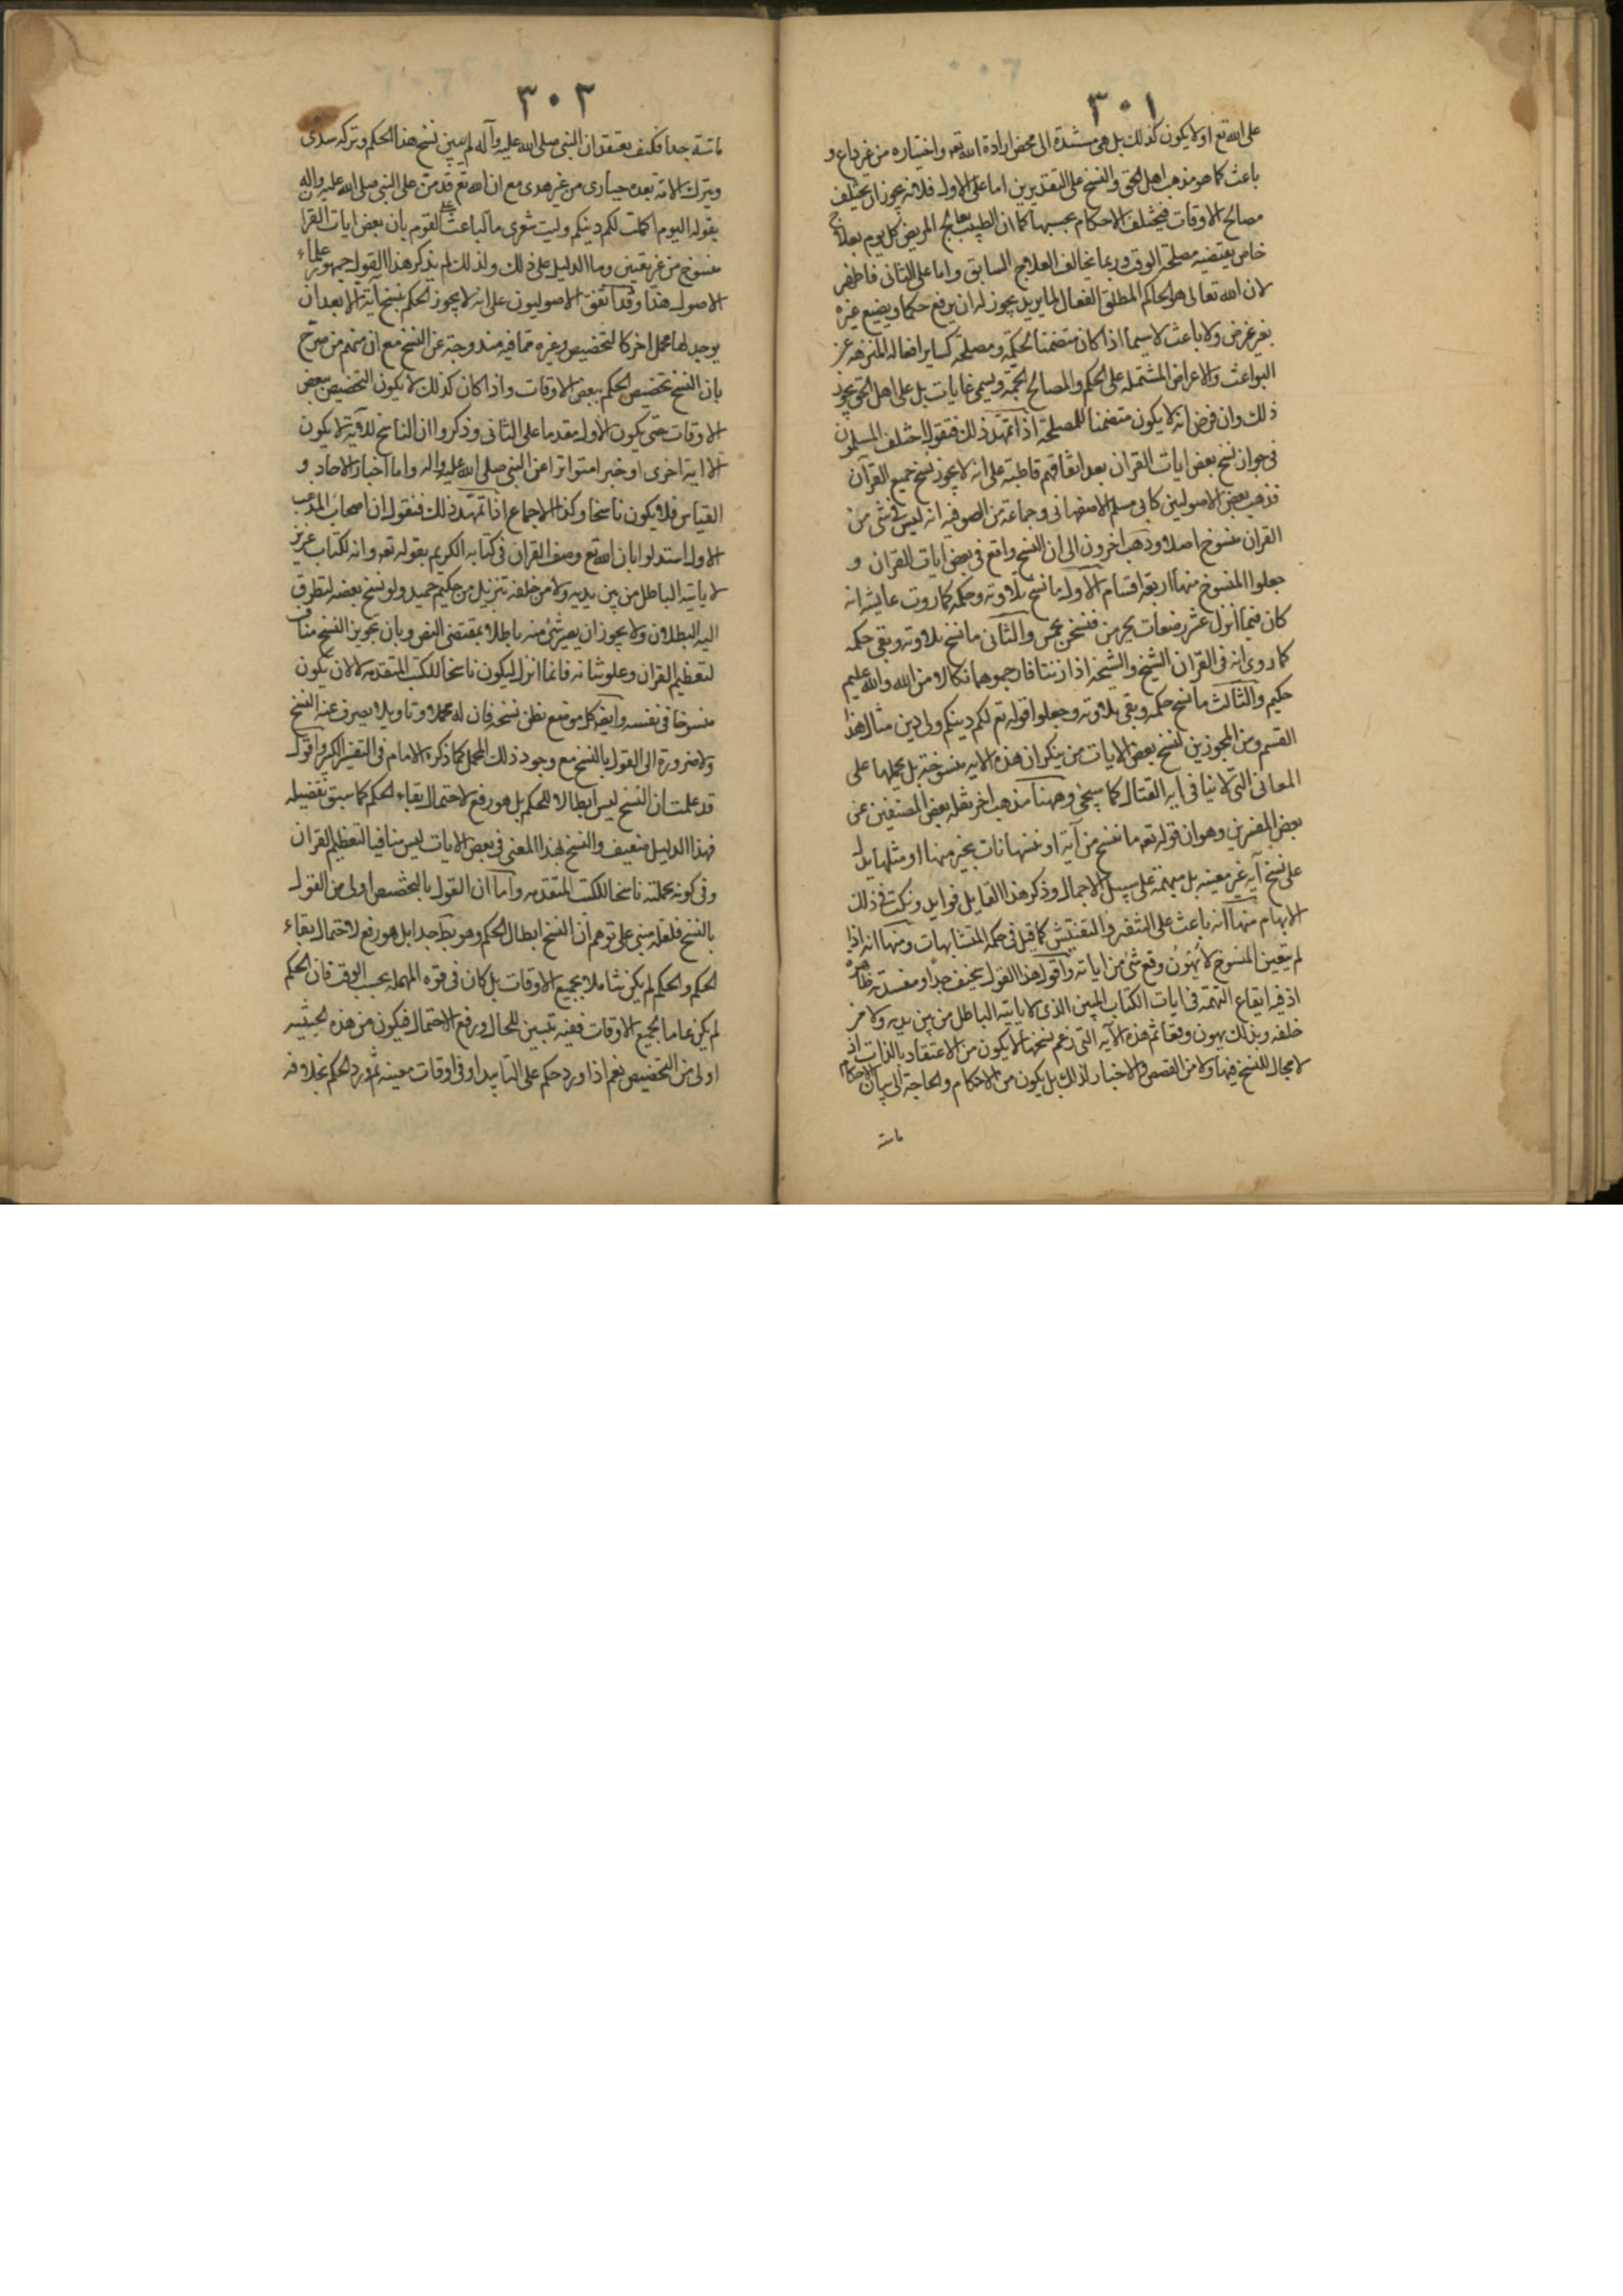 ٣٠١
على الله تع اولا يكون كذلك بل هى مستندة الى محض ارادة الله تعه واختياره من غير داع و
باعث كما هو مذهب اهل الحق والنسخ على التقديرين اما على الاول فلانه يجوز ان يختلف
مصالح الاوقات فيختلف الاحكام بحسبها كما ان الطبيب يعالج المريض كل يوم بعلاج
خاص يقتضيه مصلحة الوقت وربما يخالف العلاج السابق واما على الثانى فاظهر
لان الله تعالى هو الحاكم المطلق الفعال لما يريد يجوز له ان يرفع حكما ويضيع غيره
بغير غرض ولا باعث لاسيما اذا كان متضمنا لحكمة ومصلحة كساير افعاله المنزهه عن
البواعث والاعراض المشتمله على الحكم والمصالح الجمة ويسمى غايات بل على اهل الحق يجوز
ذلك وان فرض انه لا يكون متضمنا للمصلحة اذا تمهد ذلك فنقول اختلف المسلمون
فى جواز نسخ بعض ايات القران بعد اتفاقهم قاطبة على انه لا يجوز نسخ جميع القرآن
فذهب بعض الاصوليين كابى مسلم الاصفهانى وجماعة من الصوفيه انه ليس فى شى من
القران منسوخ اصلا وذهب اخرون الى ان النسخ واقع فى بعض ايات القران و
جعلوا المنسوخ منها اربعة اقسام الاول ما نسخ تلاوته وحكمه كما روت عايشه انه
كان فيما انزل عشر رضعات يحرمن فنسخن بخمس والثانى ما نسخ تلاوته وبقى حكمه
كما روى انه فى القران الشيخ والشيخه اذا زنتا فارجموهما نكالا من الله والله عليم
حكيم والثالث ما نسخ حكمه وبقى تلاوته وجعلوا قوله تع لكم دينكم ولى دين مثال هذا
القسم ومن المجوزين لنسخ بعض الايات من ينكر ان هذه الايه منسوخة بل يحملها على
المعانى التى لا ينافى ايه القتال كما سيجئ وههنا مذهب اخر نقله بعض المصنفين عن
بعض المفسرين وهو ان قوله تعه ما ننسخ من آية او ننسها نات بخير منها او مثلها يدل
على نسخ آيه غير معينه بل مبهمة على سبيل الاجمال وذكر هذا القايل فوايد ونكت فى ذلك
الابهام منها انه باعث على التفقير والتفتيش كما قيل فى حكمه المتشابهات ومنها انه اذا
لم يتعين المنسوخ لا يهون وقع شئ من اياته واقول هذا القول سخيف جدا ومفسدته ظاهرة
اذ فيه ايقاع التهمة فى ايات الكتاب المبين الذى لا ياتيه الباطل من بين يديه ولا من
خلفه وبذلك يهون وقعا ثم هذه الآيه التى زعم نسخها لا يكون من الاعتقاد بالذات اذ
لا مجال للنسخ فيها ولا من القصص والاخبار لذلك بل يكون من الاحكام والحاجة الى بيان الاحكام
ماسة
٣٠٢
ماسة جدا فكيف يعتقد ان النبى صلى الله عليه وآله لم يبين نسخ هذا الحكم وتركه سدى
ويترك الامة بعده حيارى من غير هدى مع ان الله تع قد من على النبى صلى الله عليه واله
بقوله اليوم اكملت لكم دينكم وليت شعرى ما الباعث على القوم بان بعض ايات القرا
منسوخ من غير تعيين وما الدليل على ذلك ولذلك لم يذكر هذا القول جمهور علماء
الاصول هذا وقد اتفق الاصوليون على انه لا يجوز الحكم بنسخ آية الا بعد ان
يوجد لها محمل اخر كالتخصيص وغيره مما فيه مندوحة عن النسخ مع ان منهم من صرح
بان النسخ تخصيص الحكم ببعض الاوقات واذا كان كذلك لا يكون التخصيص ببعض
الاوقات حتى يكون الاول مقدما على الثانى وذكروا ان الناسخ للآية لا يكون
الا اية اخرى او خبرا متواترا عن النبى صلى الله عليه واله واما اخبار الاحاد و
القياس فلا يكون ناسخا وكذا الاجماع اذا تمهد ذلك فنقول ان اصحاب المذهب
الاول استدلوا بان الله تع وصف القران فى كتابه الكريم بقوله تعه وانه لكتاب عزيز
لا ياتيه الباطل من بين يديه ولا من خلفه تنزيل من حكيم حميد ولو نسخ بعضه لتطرق
اليه البطلان ولا يجوز ان يصير شئ منه باطلا بمقتضى النص وبان تجويز النسخ مناف
لتعظيم القران وعلو شانه فانما انزل ليكون ناسخا للكتب المتقدمه لا لان يكون
منسوخا فى نفسه وايضه كل موضع نظن نسخه فان له محملا وتاويلا يصرف عنه النسخ
ولا ضرورة الى القول بالنسخ مع وجود ذلك المحمل كما ذكره الامام فى التفسير الكبير واقول
قد علمت ان النسخ ليس ابطالا للحكم بل هو رفع لاحتمال بقاء الحكم كما سبق تفضيله
فهذا الدليل ضعيف والنسخ بهذا المعنى فى بعض الايات ليس منافيا لتعظيم القران
وفى كونه بجملته ناسخا للكتب المتقدمه واما ان القول بالتخصيص اولى من القول
بالنسخ فلعله مبنى على توهم ان النسخ ابطال الحكم وهو بط جدا بل هو رفع لاحتمال بقاء
الحكم والحكم لم يكن شاملا بجميع الاوقات بل كان فى قوة المهمله بحسب الوقت فان الحكم
لم يكن عاما بجميع الاوقات ففيه تبيين للحال ورفع الاحتمال فيكون من هذه الحيثيه
اولى من التخصيص نعم اذا ورد حكم على التابيد او فى اوقات معينه ثم ورد الحكم بخلافه